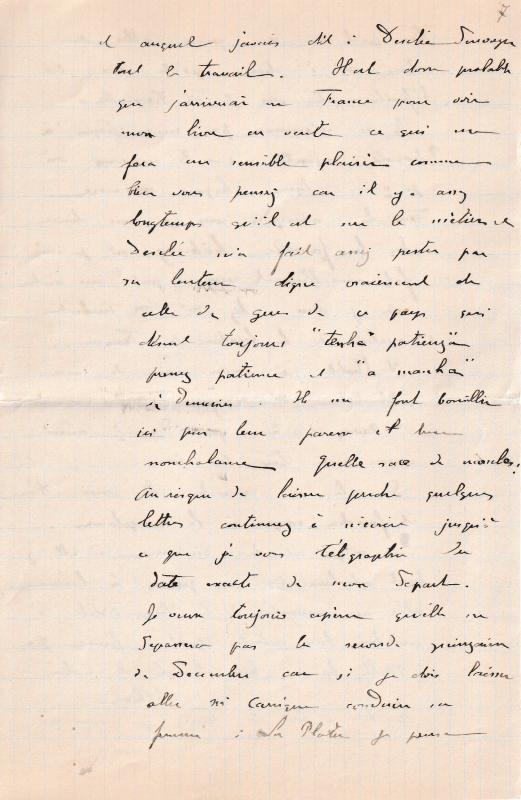 7
et auquel j'avais dit à Desclée d'envoyer
tout le travail. Il est donc probable
que j'arriverai en France pour voir
mon livre en vente ce qui me
fera un sensible plaisir comme
bien vous pensez car il y a assez
longtemps qu'il est sur le métier et
Desclée m'a fait assez pester par
sa lenteur digne vraiment de
celle des gens de ce pays qui
disent toujours "tenha patiença"
prenez patience et "a manhã"
à demain. Ils me font bouillir
ici par leur paresse et leur
nonchalance. Quelle race de
Au risque de laisser perdre quelques
lettres continuez à m'écrire jusqu'à
ce que je vous télégraphie la
date exacte de mon départ.
Je veux toujours espérer qu'elle ne
dépassera pas la seconde quinzaine
de Décembre car si je dois laisser
aller Mr Carrigue conduire sa
à La Plata je pense